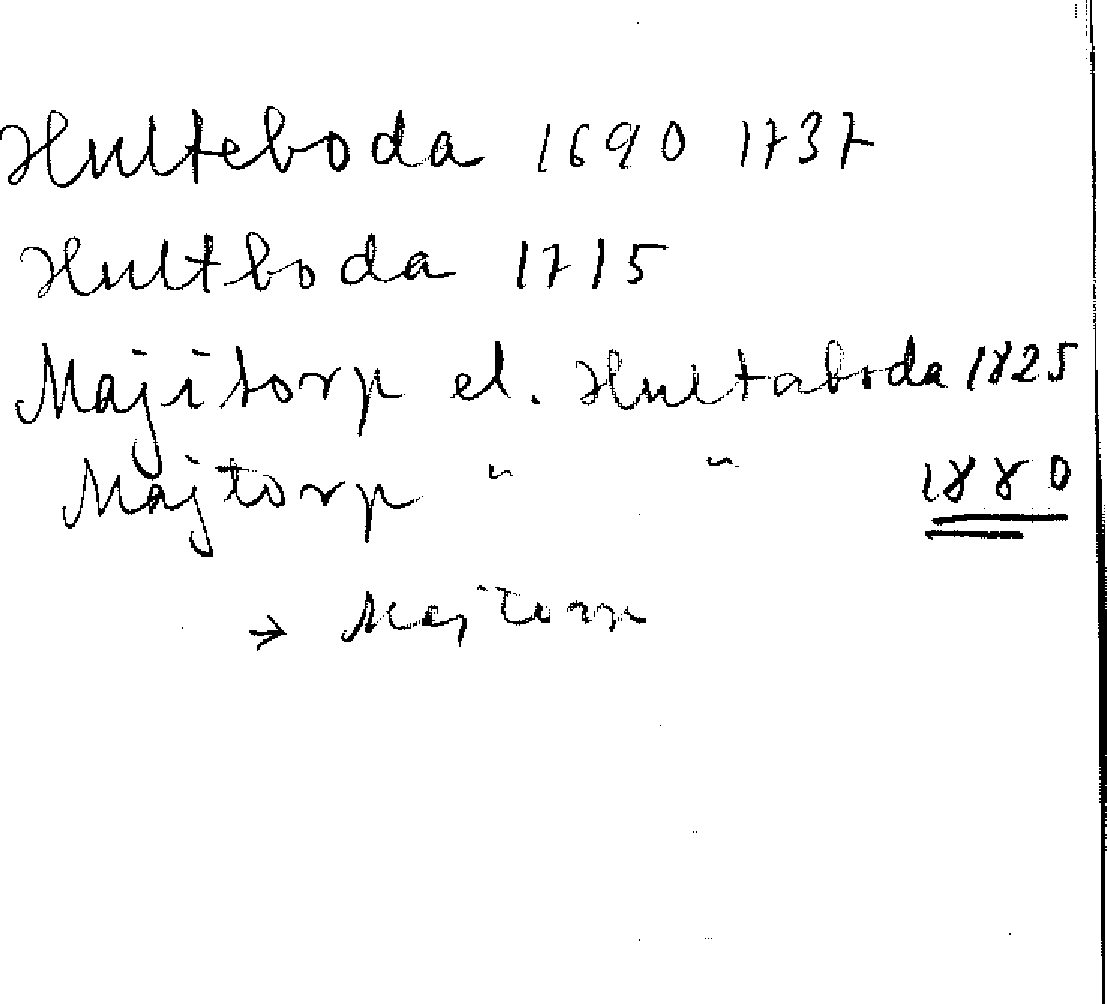 Hulteboda 1690 1737
Hultboda 1715
Majitorp el. Hultaboda 1825
Majtorp " " 1880
→ Majtorp